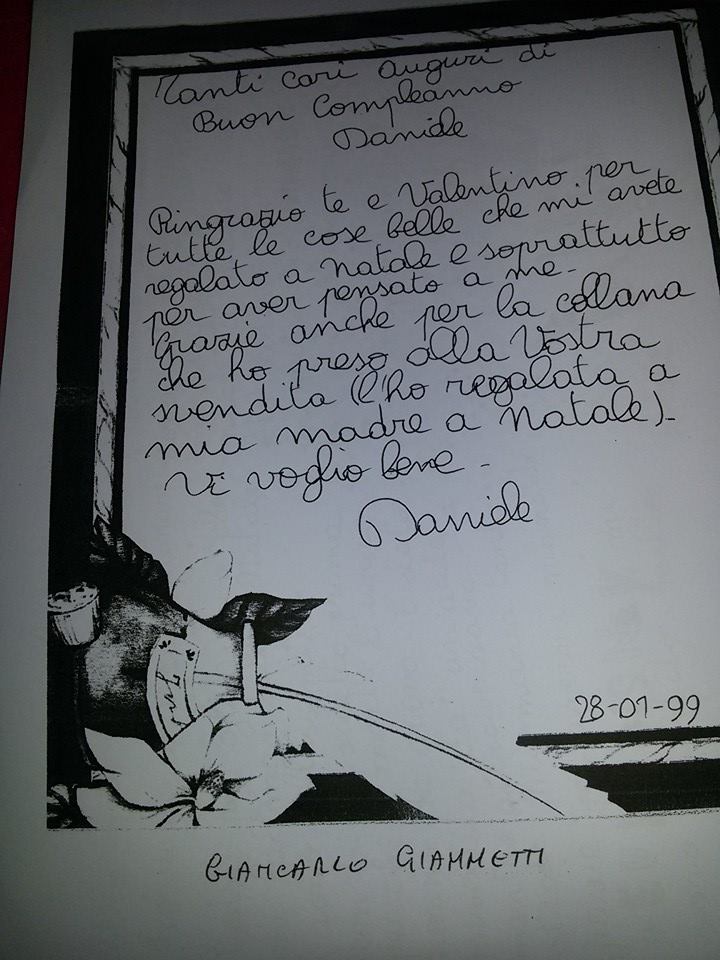 Tanti cari auguri di
Buon Compleanno
Daniele
Ringrazio te e Valentino per
tutte le cose belle che mi avete
regalato a Natale e soprattutto
per aver pensato a me.
Grazie anche per la collana
che ho preso alla Vostra
svendita (l'ho regalata a
mia madre a Natale).
Vi voglio bene.
Daniele
28-01-99
GIANCARLO GIAMMETTI